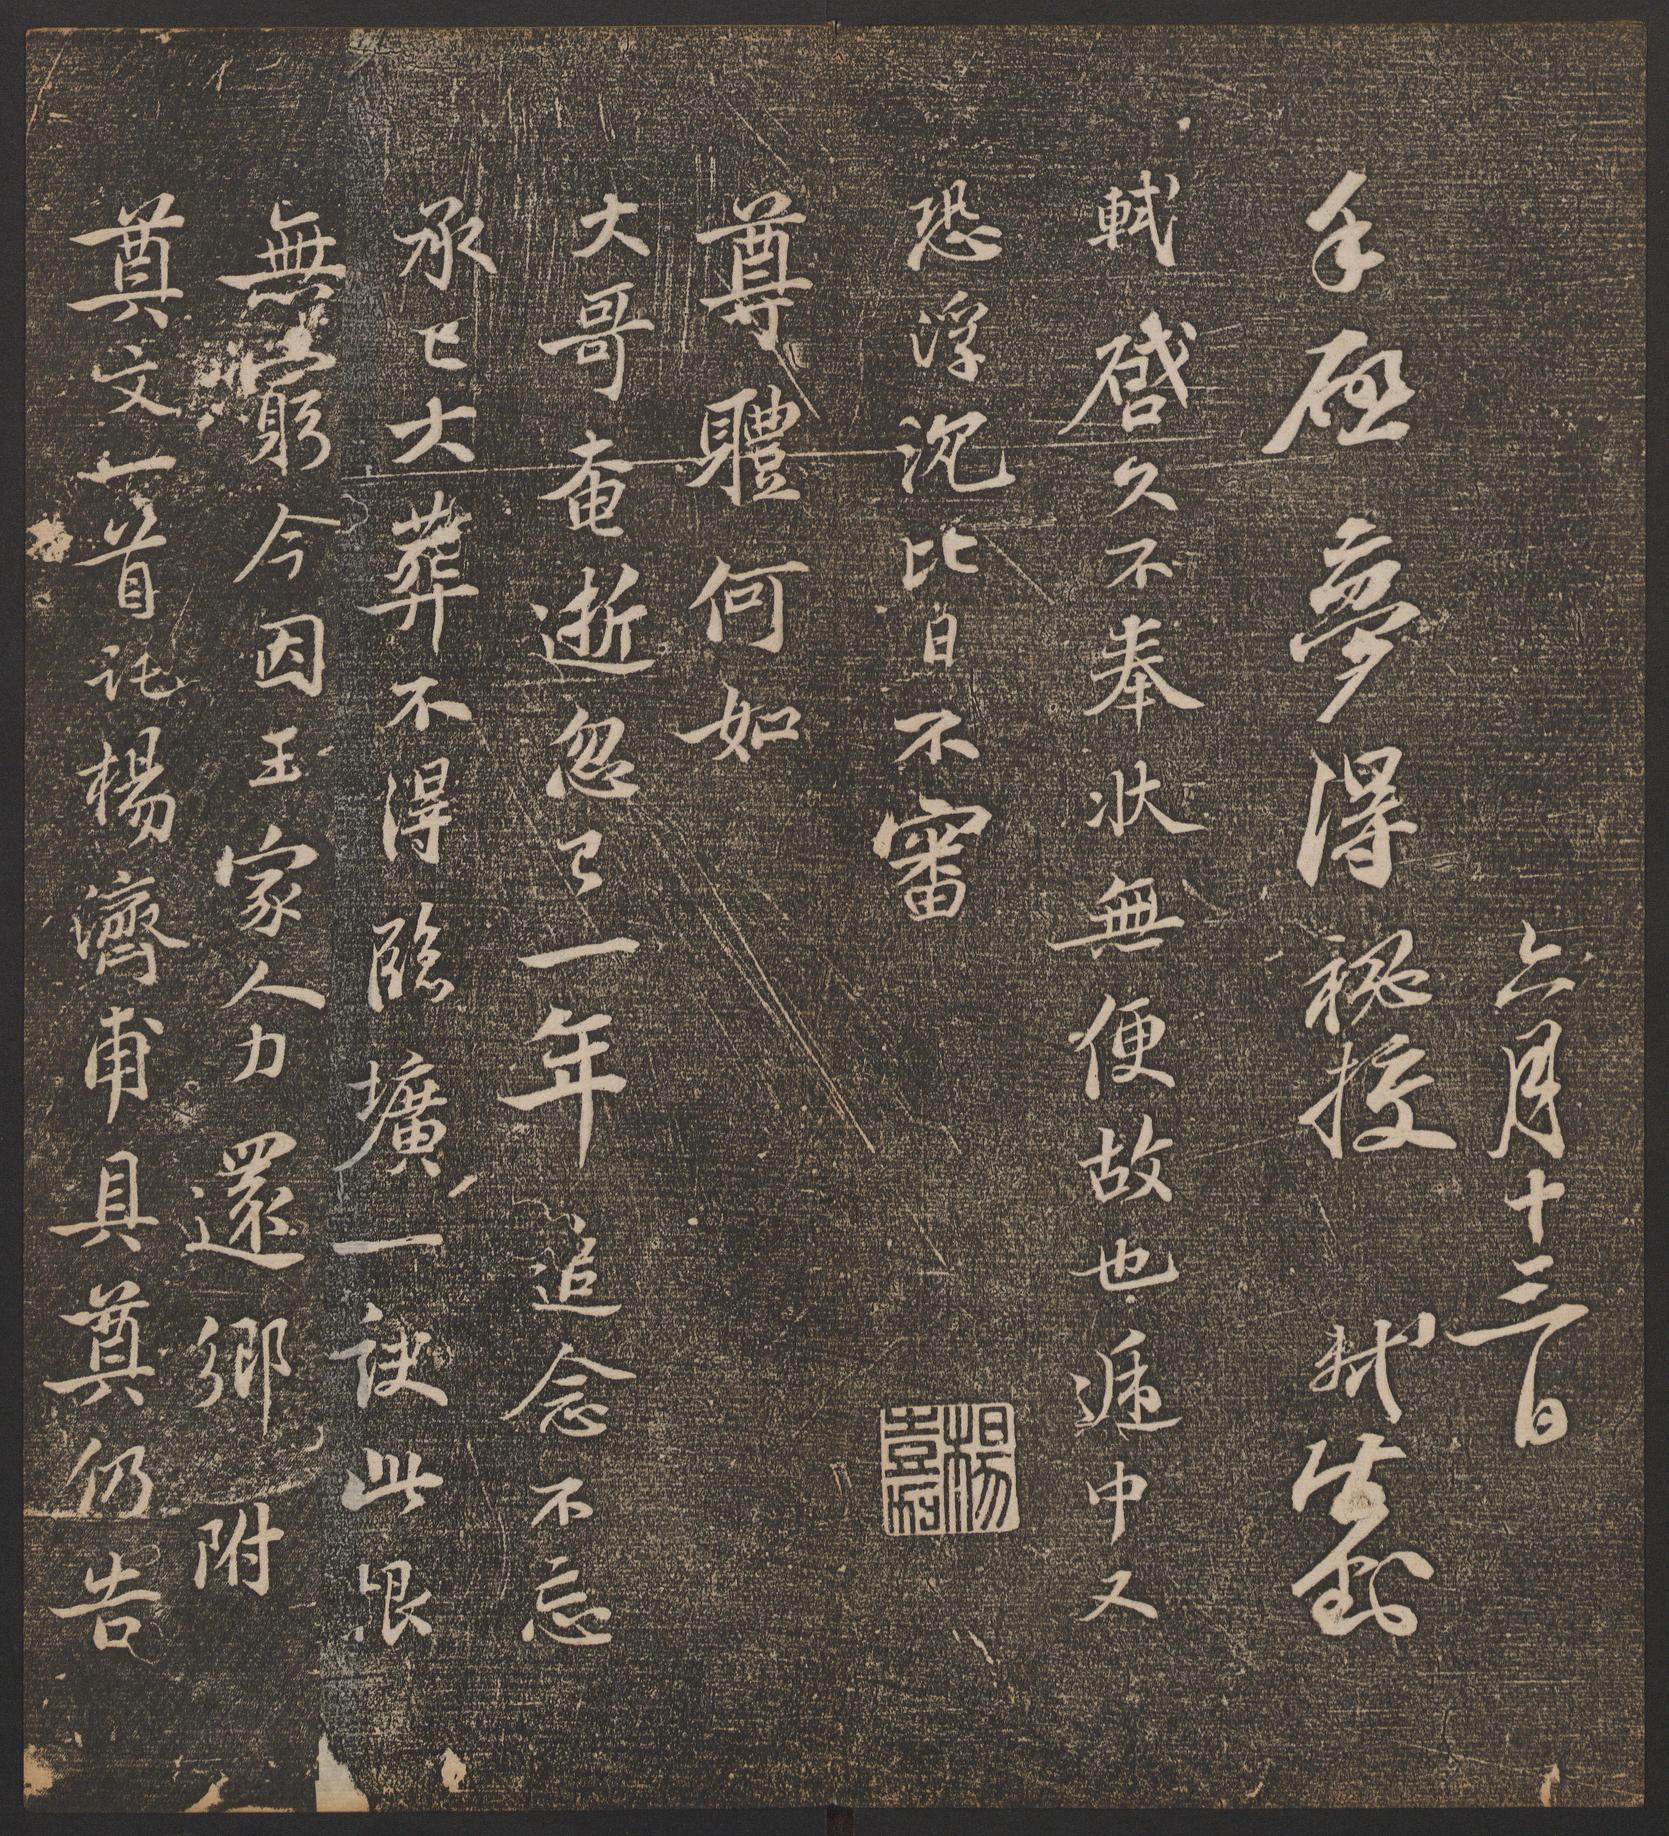 六月十二日
手啓夢得秘校 軾 封
軾啓久不奉狀無便故也遞中又
恐浮沉比日不審
尊體何如
大哥奄逝忽已一年追念不忘
承已大葬不得臨壙一訣此恨
無窮今因王家人力還鄉附
奠文一首託楊濟甫具奠仍告